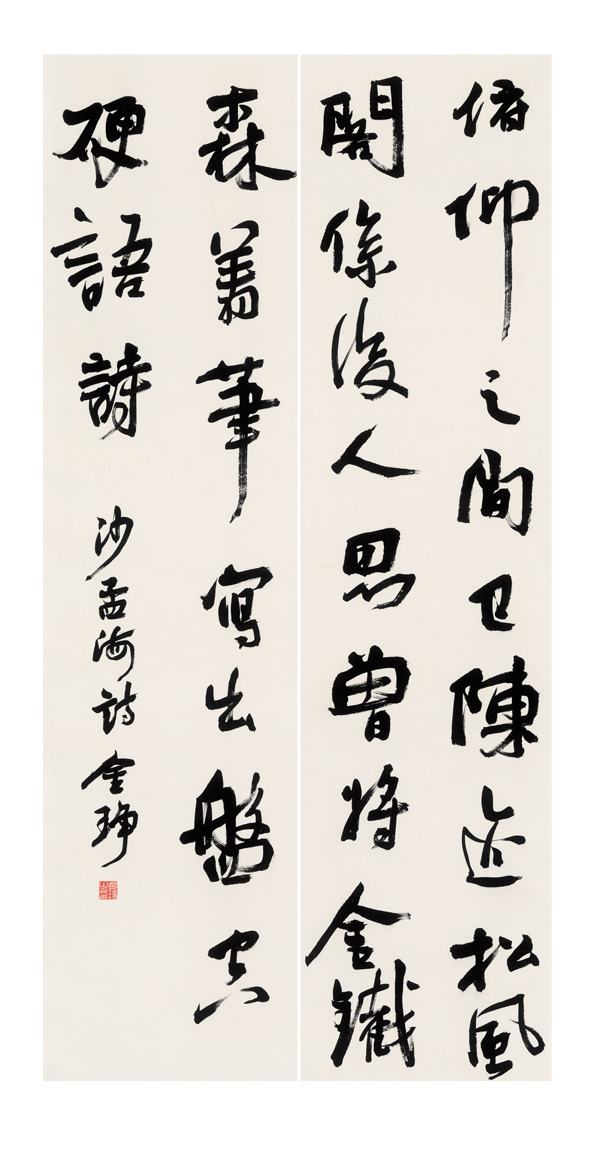 俯仰之間已陳迹松風
閣係後人思曾將金鐵
森嚴筆寫出盤空
硬語詩
沙孟海詩 金琤